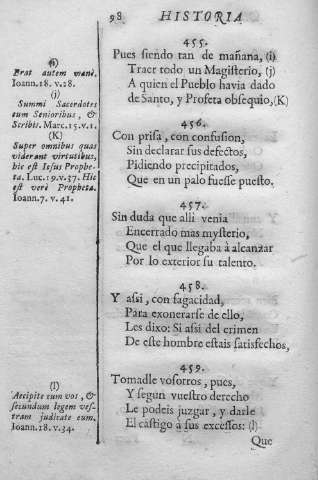 98 HISTORIA
455.
Pues siendo tan de mañana, (i)
Traer todo un Magisterio, (j)
A quien el Pueblo havia dado
de Santo, y Profeta obsequio, (K)
456.
Con prisa, con confusion,
Sin declarar sus defectos,
Pidiendo precipitados,
Que en un palo fuesse puesto.
457.
Sin duda que alli venia
Encerrado mas mysterio,
Que el que llegaba à alcanzar
Por lo exterior su talento.
458.
Y assi, con sagacidad,
Para exonerarse de ello,
Les dixo: Si assi del crimen
De este hombre estais satisfechos,
459.
Tomadle vosotros, pues,
Y segun vuestro derecho
Le podeis juzgar, y darle
El castigo à sus excessos: (l)
Que
(i)
Erat autem manè.
Ioann. 18. v. 28.
(j)
Summi Sacerdotes
cum Senioribus, &
Scribis. Marc. 15. v. 1.
(K)
Super omnibus quas
viderant virtutibus,
hic est Iesus Prophe-
ta. Luc. 19. v. 37. Hic
est verè Propheta.
Ioann. 7. v. 41.
(l)
Accipite eum vos, &
secundum legem ves-
tram judicate eum.
Ioann. 18. v. 34.